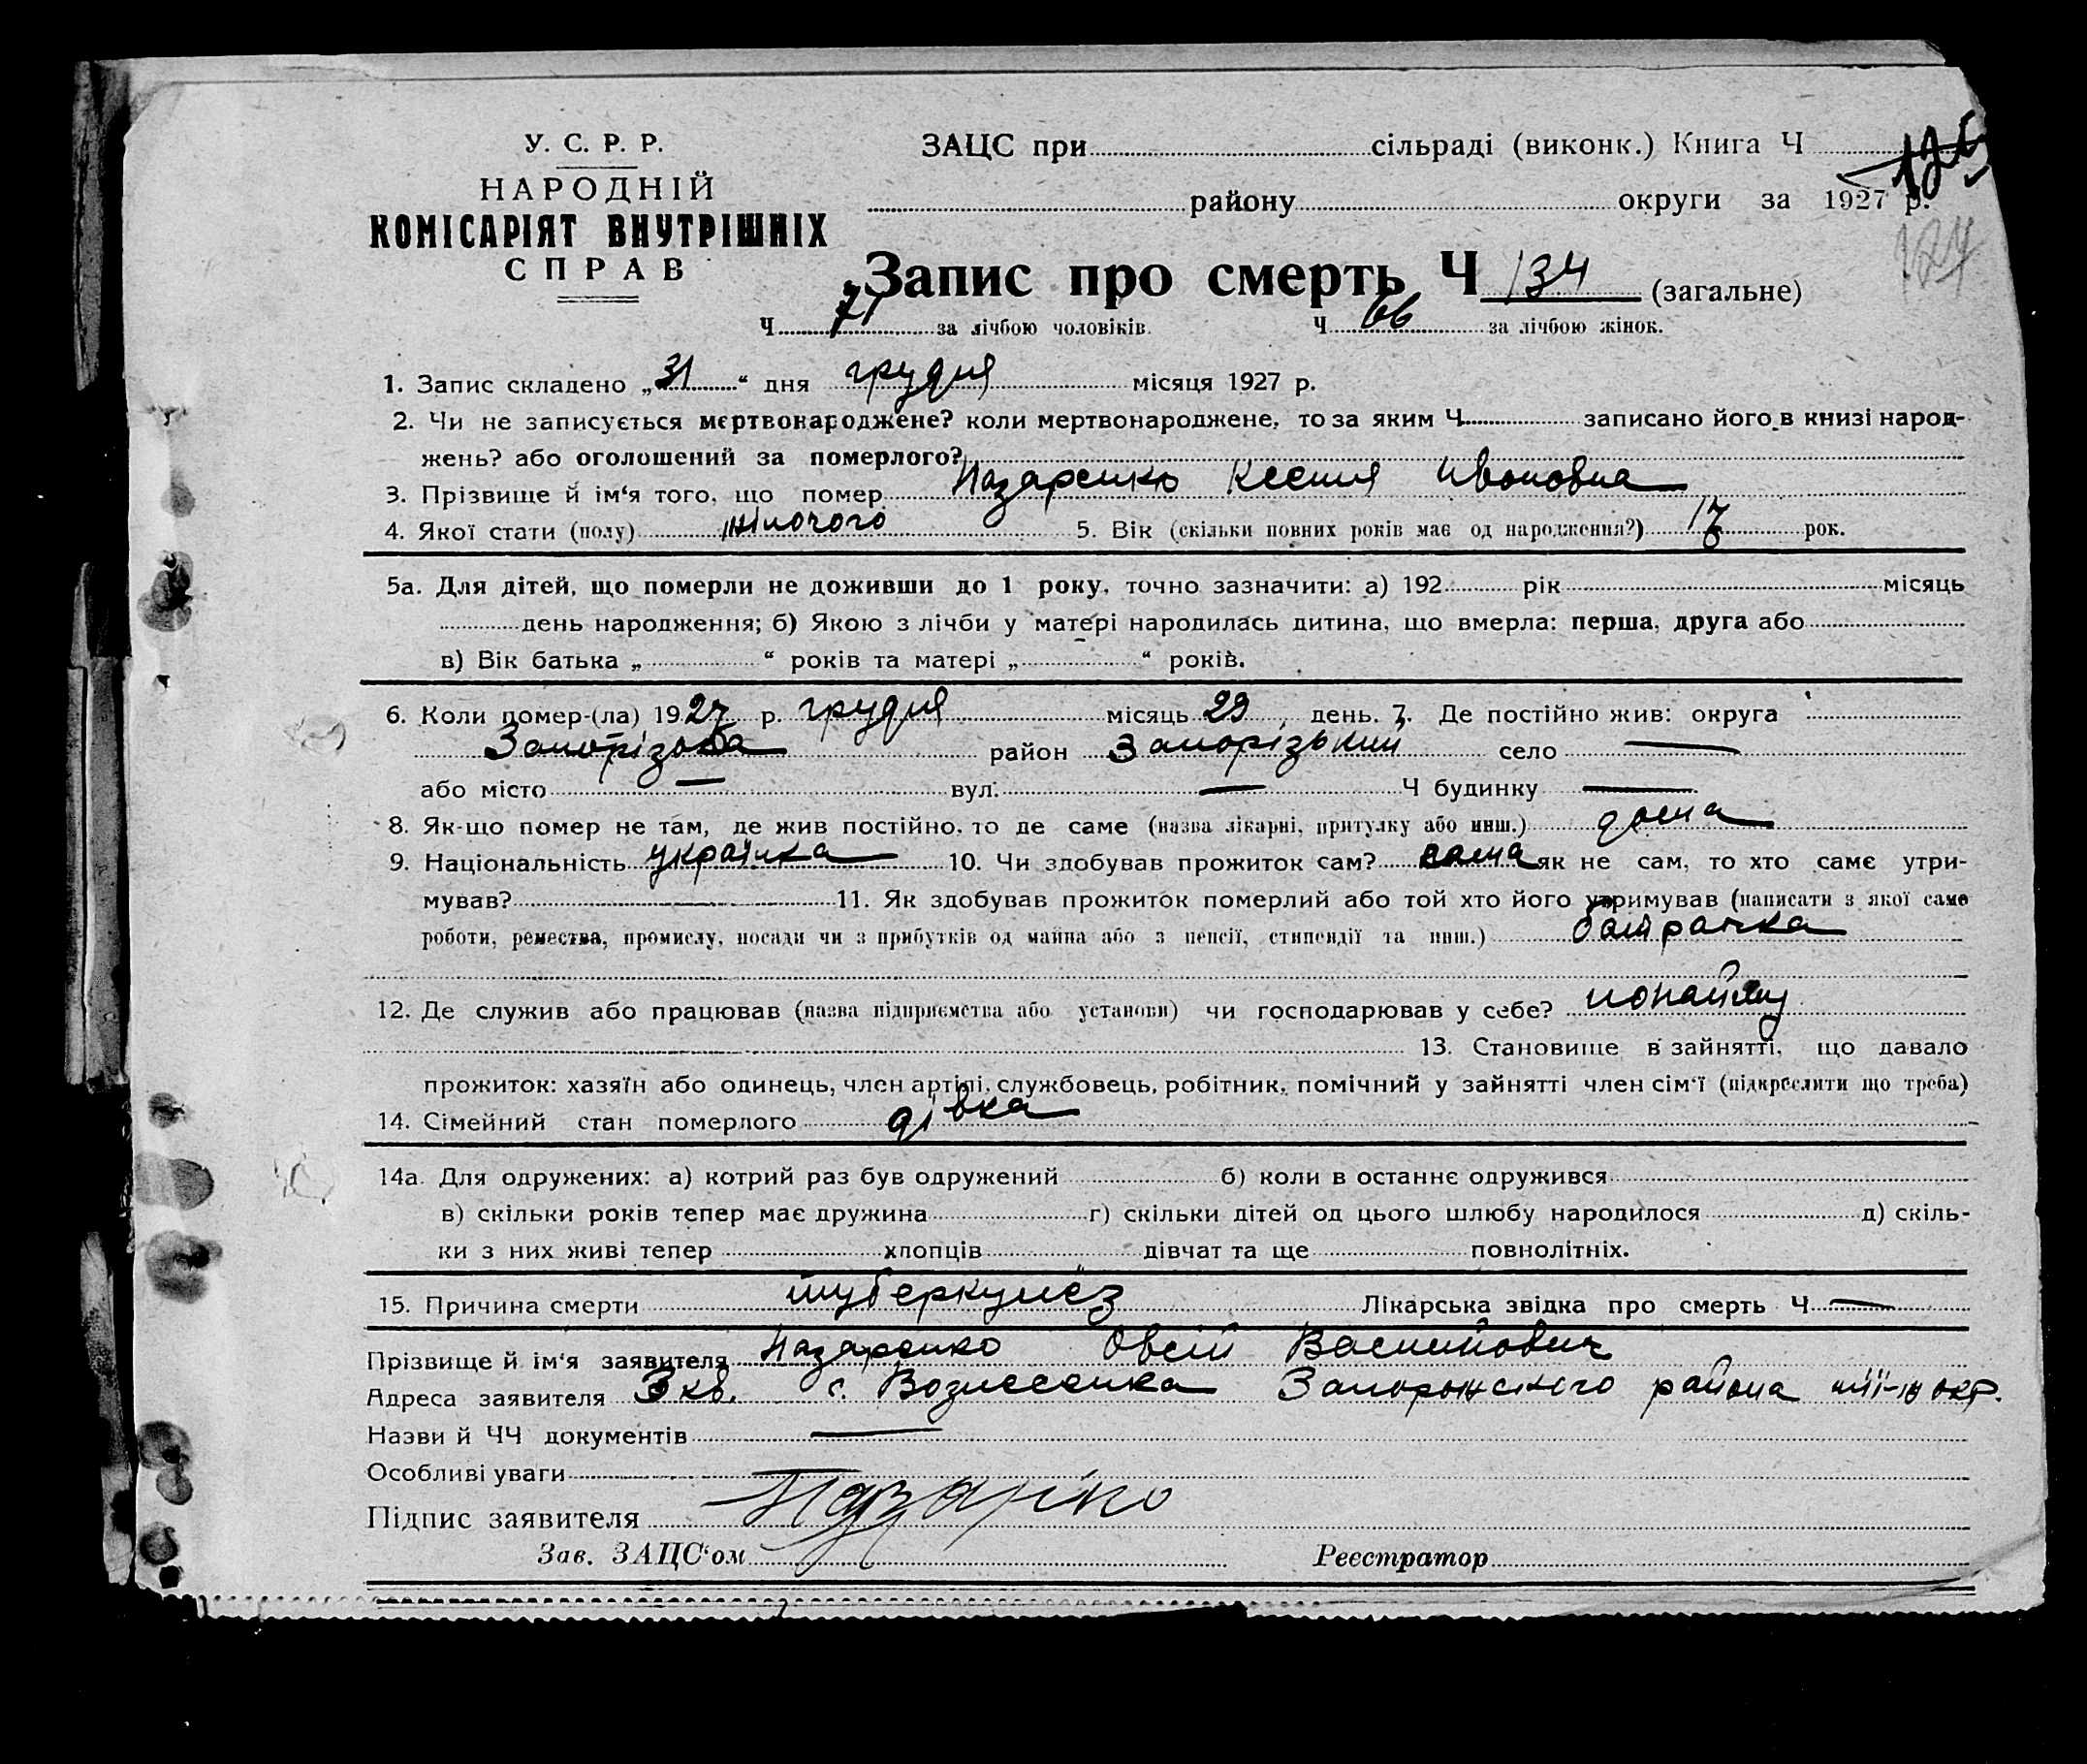 У. С. Р. Р.
НАРОДНІЙ
КОМІСАРІЯТ ВНУТРІШНІХ
СПРАВ
ЗАЦС при сільраді (виконк.) Книга Ч
району округи за 1927 р.
Запис про смерть Ч 134 (загальне)
Ч 71 за лічбою чоловіків. Ч 66 за лічбою жінок.
1. Запис складено „31“ дня грудня місяця 1927 р.
2. Чи не записується мертвонароджене? коли мертвонароджене, то за яким Ч записано його в книзі народ-
жень? або оголошений за померлого?
3. Прізвище й ім‘я того, що помер Назаренко Ксения Ивановна
4. Якої стати (полу) жіночого 5. Вік (скільки повних років має од народження?) 17 рок.
5а. Для дітей, що померли не доживши до 1 року, точно зазначити: а) 192 рік місяць
день народження; б) Якою з лічби у матері народилась дитина, що вмерла: перша, друга або
в) Вік батька „ “ років та матері „ “ років.
6. Коли помер-(ла) 1927 р. грудня місяць 29 день. 7. Де постійно жив: округа
район Запорізький село —
або місто — вул. — Ч будинку —
8. Як-що помер не там, де жив постійно, то де саме (назва лікарні, притулку або инш.) дома
9. Національність українка 10. Чи здобував прожиток сам? сама як не сам, то хто саме утри-
мував? — 11. Як здобував прожиток померлий або той хто його утримував (написати з якої саме
роботи, ремества, промислу, посади чи з прибутків од майна або з пенсії, стипендії та инш.) батрачка
12. Де служив або працював (назва підприємства або установи) чи господарював у себе? понайму
13. Становище в зайнятті, що давало
прожиток: хазяїн або одинець, член артілі, службовець, робітник, помічний у зайнятті член сім‘ї (підкреслити що треба)
14. Сімейний стан померлого дівка
14а. Для одружених: а) котрий раз був одружений б) коли в останнє одружився
в) скільки років тепер має дружина г) скільки дітей од цього шлюбу народилося д) скіль-
ки з них живі тепер хлопців дівчат та ще повнолітніх.
15. Причина смерти туберкулёз Лікарська звідка про смерть Ч —
Прізвище й ім‘я заявителя Назаренко Овсій Васильович
Адреса заявителя 3 кв. с. Вознесенка Запорожского района окр.
Назви й ЧЧ документів —
Особливі уваги
Підпис заявителя
Зав. ЗАЦС‘ом Реєстратор